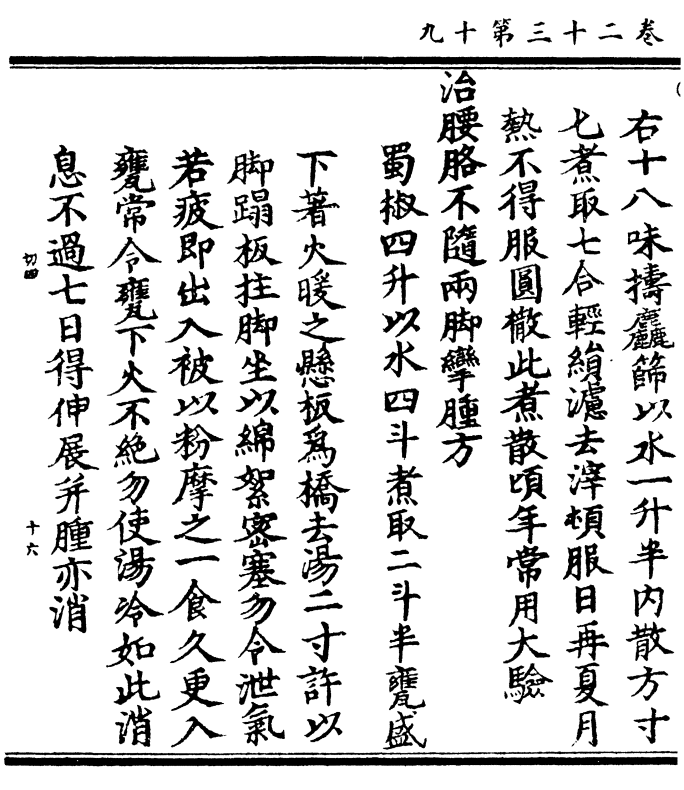 卷二十三第十九
右十八味擣麤篩以水一升半內散方寸
七煮取七合輕絹濾去滓頓服日再夏月
熱不得服圓檄此煮散頃年常用大驗
治腰胳不隨兩脚攣腫方
蜀椒四升以水四斗煮取二斗半甕盛
下著火暖之懸板爲橋去湯二寸許以
脚蹋板拄脚坐以綿絮密塞勿令泄氣
若疲即出入被以粉摩之一食久更入
甕常令甕下火不絶勿使湯冷如此消
息不過七日得伸展并腫亦消
切四
十六